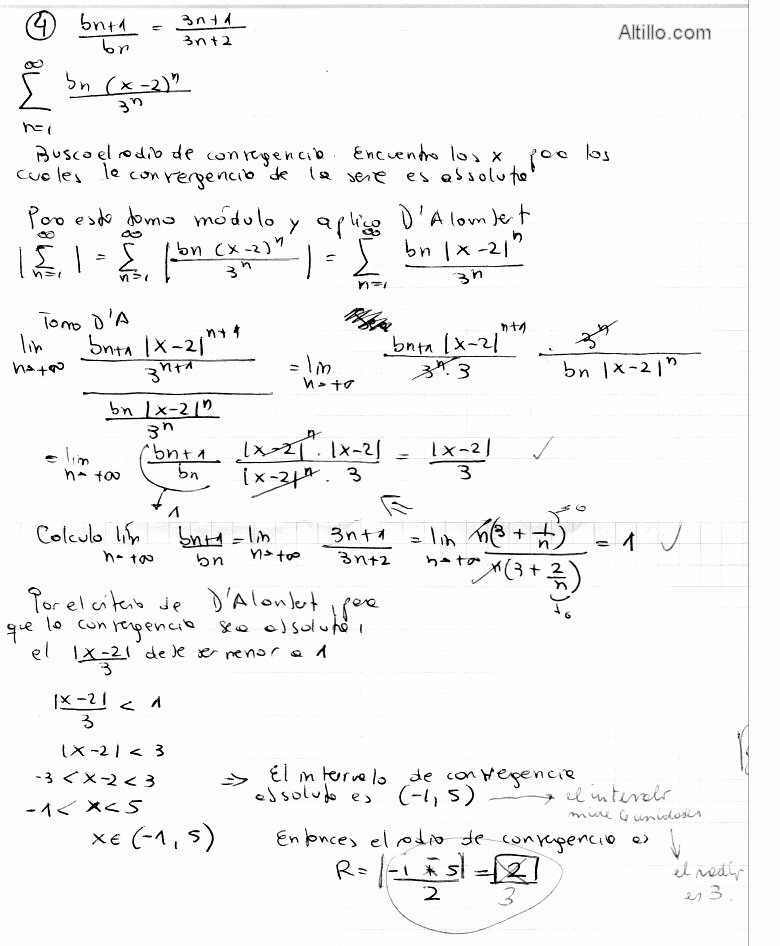 ④ bn+1/bn = 3n+1/3n+2
Altillo.com
∞∑n=1 bn (x-2)^n/3^n
Busco el radio de convergencia. Encuentro los x para los
cuales la convergencia de la serie es absoluta
Para esto tomo módulo y aplico D'Alambert
|∞∑n=1 | = ∞∑n=1 |bn (x-2)^n/3^n| = ∞∑n=1 bn |x-2|^n/3^n
Tomo D'A
lim n→+∞ (bn+1 |x-2|^n+1/3^n+1)/(bn |x-2|^n/3^n) = lim n→+∞ bn+1 |x-2|^n+1/3^n · 3 · 3^n/bn |x-2|^n
= lim n→+∞ (bn+1/bn) |x-2|^n · |x-2|/|x-2|^n · 3 = |x-2|/3 ✓
→ 1
Calculo lim n→+∞ bn+1/bn = lim n→+∞ 3n+1/3n+2 = lim n→+∞ n(3 + 1/n)/n(3 + 2/n) = 1 ✓
→0
→0
Por el criterio de D'Alambert, para
que la convergencia sea absoluta,
el |x-2|/3 debe ser menor a 1
|x-2|/3 < 1
|x-2| < 3
-3 < x-2 < 3 ⇒ El intervalo de convergencia
-1 < x < 5 absoluta es (-1, 5) → el intervalo
mide 6 unidades
x ∈ (-1, 5) Entonces el radio de convergencia es
R = |-1 - 5|/2 = 2
3
el radio
es 3.